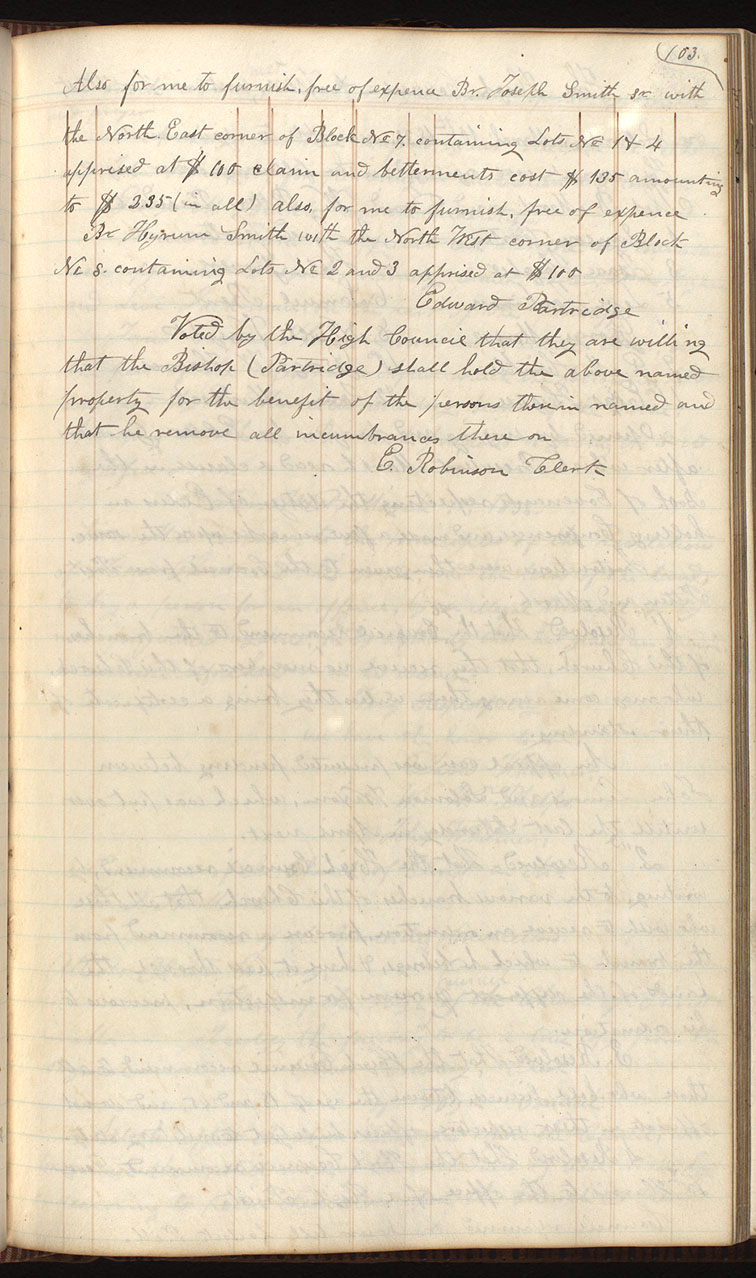 103.
Also for me to furnish, free of expence Br. Joseph Smith sr with
the North East corner of Block No 7. containing Lots No 1 & 4
apprised at $100 claim and betterments cost $135 amounting
to $235 (in all) also, for me to furnish, free of expence
Br Hyrum Smith with the North West corner of Block
No 8. containing Lots No 2 and 3 apprised at $100
Edward Partridge
Voted by the High Council that they are willing
that the Bishop (Partridge) shall hold the above named
property for the benefit of the persons therein named and
that he remove all incumbrances there on
E. Robinson Clerk